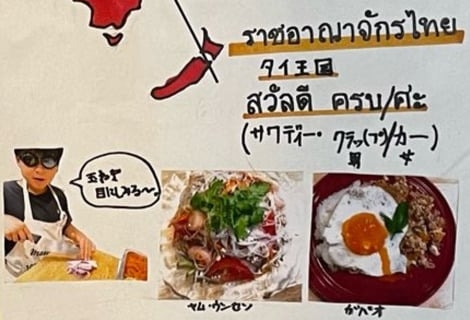 ราชอาณาจักรไทย
タイ王国
สวัลดี ครบ/ศะ
(サワディー・クラッ(プ)/カー)
男 女
玉ねぎ
目にしみる〜
ヤム・ウンセン
ガパオ